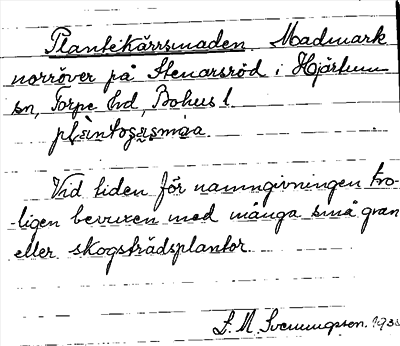 Plantekärrsmaden. Madmark
norröver på Stenarsröd i Hjärtum
sn, Torpe hd, Bohus l.

Vid tiden för namngivningen tro-
-ligen bevuxen med många små gran
eller skogsträdsplantor.
S. M. Svenningson. 193